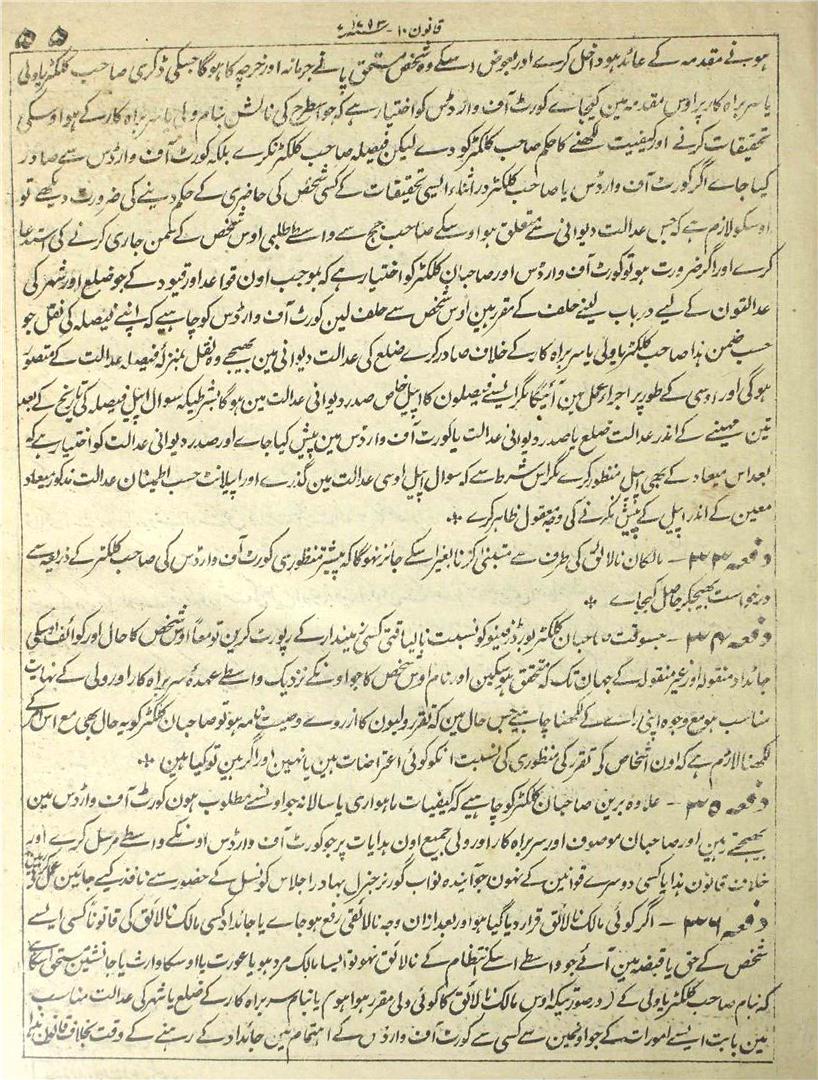 قانون ۱۰ - ۱۷۹۳ء
۵۵
ہونے مقدمہ کے عائد ہو داخل کرے اور بعوض اسکے وہ شخص مستحق پانے جرمانہ اور خرچہ کا ہوگا جسکی ڈگری صاحب کلکٹر یا ولی
یا سربراہ کار پر اوس مقدمہ مین کیجاے کورٹ آف وارڈس کو اختیار ہے کہ جو اسطرح کی نالش بنام ولی یا سربراہ کار کے ہو اوسکی
تحقیقات کرنے اور کیفیت لکھنے کا حکم صاحب کلکٹر کو دے لیکن فیصلہ صاحب کلکٹر نکرے بلکہ کورٹ آف وارڈس سے صادر
کیا جاے اگر کورٹ آف وارڈس یا صاحب کلکٹر در اثناء ایسی تحقیقات کے کسی شخص کی حاضری کے حکم دینے کی ضرورت دیکھے تو
اوسکو لازم ہے کہ جس عدالت دیوانی سے متعلق ہو اوسکے صاحب جج سے واسطے طلبی اوس شخص کے سمن جاری کرنے کی استدعا
کرے اور اگر ضرورت ہو تو کورٹ آف وارڈس اور صاحبان کلکٹر کو اختیار ہے کہ بموجب اون قواعد اور قیود کے جو ضلع اور شہر کی
عدالتون کے لیے درباب لینے حلف کے مقرر ہین اوس شخص سے حلف لین کورٹ آف وارڈس کو چاہیے کہ اپنے فیصلہ کی نقل جو
حسب ضمن ہذا صاحب کلکٹر یا ولی یا سربراہ کار کے خلاف صادر کرے ضلع کی عدالت دیوانی مین بھیجے وہ نقل بمنزلہ فیصلہ عدالت کے متصور
ہوگی اور اوسی کے طور پر اجرا عمل مین آئیگا مگر ایسے فیصلون کا اپیل خاص صدر دیوانی عدالت مین ہوگا بشرطیکہ سوال اپیل فیصلہ کی تاریخ کے بعد
تین مہینے کے اندر عدالت ضلع یا صدر دیوانی عدالت یا کورٹ آف وارڈس مین پیش کیا جاے اور صدر دیوانی عدالت کو اختیار ہے کہ
بعد اس میعاد کے بھی اپیل منظور کرے مگر اس شرط سے کہ سوال اپیل اوسی عدالت مین گذرے اور اپیلانٹ حسب اطمینان عدالت مذکور میعاد
معین کے اندر اپیل کے پیش نکرنے کی وجہ معقول ظاہر کرے ٭
دفعہ ۳۳ - مالکان نالائق کی طرف سے متبنی کرنا بغیر اسکے جائز نہوگا کہ پیشتر منظوری کورٹ آف وارڈس کی صاحب کلکٹر کے ذریعہ سے
درخواست بھیجکر حاصل کیجاے ٭
دفعہ ۳۴ - جسوقت صاحبان کلکٹر بورڈ رینیو کو نسبت نالیاقتی کسی زمیندار کے رپورٹ کرین تو معاً اوس شخص کا حال اور کوائف اوسکی
جائداد منقولہ اور غیر منقولہ کے جہان تک کہ متحقق ہوسکین اور نام اوس شخص کا جو اونکے نزدیک واسطے عہدہ سربراہ کار اور ولی کے نہایت
مناسب ہو مع وجوہ اپنی راے کے لکھنا چاہیے جس حال مین کہ تقرر ولیون کا از روے وصیت نامہ ہو تو صاحبان کلکٹر کو یہ حال بھی مع اس امر کے
لکھنا لازم ہے کہ اون اشخاص کی تقرر کی منظوری کی نسبت انکو کوئی اعتراضات ہین یا نہین اور اگر ہین تو کیا ہین ٭
دفعہ ۳۵ - علاوہ برین صاحبان کلکٹر کو چاہیے کہ کیفیات ماہواری یا سالانہ جو اونسے مطلوب ہون کورٹ آف وارڈس مین
بھیجتے رہین اور صاحبان موصوف اور سربراہ کار اور ولی جمیع اون ہدایات پر جو کورٹ آف وارڈس اونکے واسطے مرسل کرے اور
خلاف قانون ہذا یا کسی دوسرے قوانین کے نہون جو آیندہ نواب گورنر جنرل بہادر اجلاس کونسل کے حضور سے نافذ کیے جائین عمل کرتے رہین
دفعہ ۳۶ - اگر کوئی مالک نالائق قرار دیا گیا ہو اور بعد ازان وجہ نالائقی رفع ہو جاے یا جائداد کسی مالک نالائق کی قانوناً کسی ایسے
شخص کے حق یا قبضہ مین آئے جو واسطے اسکے انتظام کے نالائق نہو تو ایسا مالک مرد ہو یا عورت یا اوسکا وارث یا جانشین مستحق اسکا ہے
کہ بنام صاحب کلکٹر یا ولی کے (درصورتیکہ اوس مالک نالائق کا کوئی ولی مقرر ہوا ہو) یا بنام سربراہ کار کے ضلع یا شہر کی عدالت مناسب
مین بابت ایسے امورات کے جو اونمین سے کسی سے کورٹ آف وارڈس کے اہتمام مین جائداد کے رہنے کے وقت بخلاف قانون ہذا